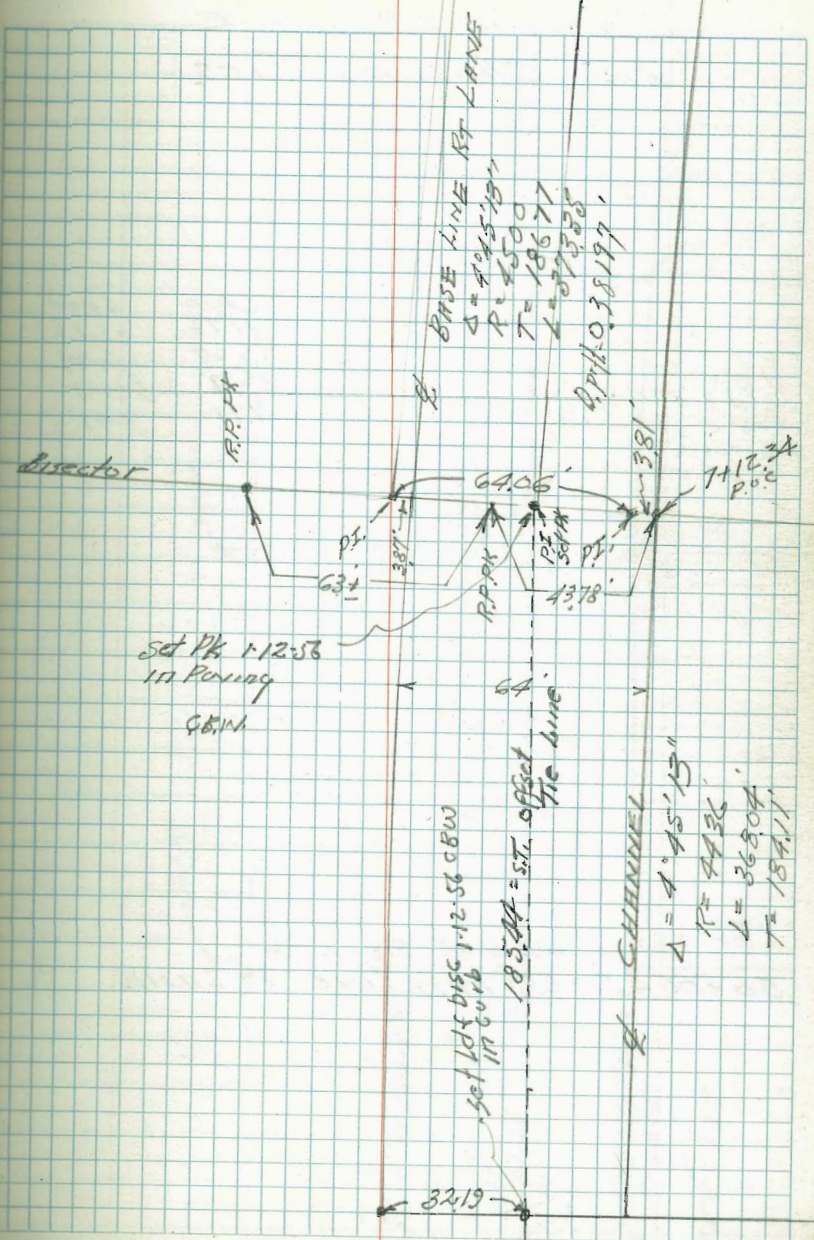 BASE LINE RT LANE
Δ = 4°45'13"
R = 4500
T = 186.77
L = 373.35
D. p/ft = 0.38197'
℄
R.P. PK
Bisector
64.06'
3.81'
7+12.34
P.O.C
P.I.
3.87'
63±
R.P. PK
P.I.
Set PK
P.I.
43.78'
Set PK 1-12-56
in Paving
64
Set L&T Disc 1-12-56 CBW
in curb
183.44 = S.T. offset
Tie Line
℄ CHANNEL
Δ = 4°45'13"
R = 4436
L = 368.04'
T = 184.11'
32.19